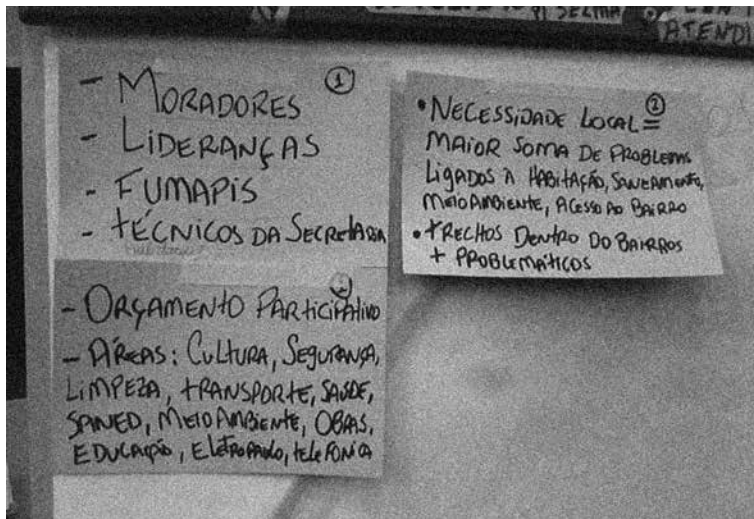 SELMA
ATENDI
①
- MORADORES
- LIDERANÇAS
- FUMAPIS
- TÉCNICOS DA SECRETARIA
- ORÇAMENTO PARTICIPATIVO
- ÁREAS: CULTURA, SEGURANÇA,
LIMPEZA, TRANSPORTE, SAÚDE,
SANED, MEIO AMBIENTE, OBRAS,
EDUCAÇÃO, ELETROPAULO, TELEFONICA
②
• NECESSIDADE LOCAL =
MAIOR SOMA DE PROBLEMAS
LIGADOS À HABITAÇÃO, SANEAMENTO,
MEIO AMBIENTE, ACESSO AO BAIRRO
• TRECHOS DENTRO DO BAIRROS
+ PROBLEMÁTICOS